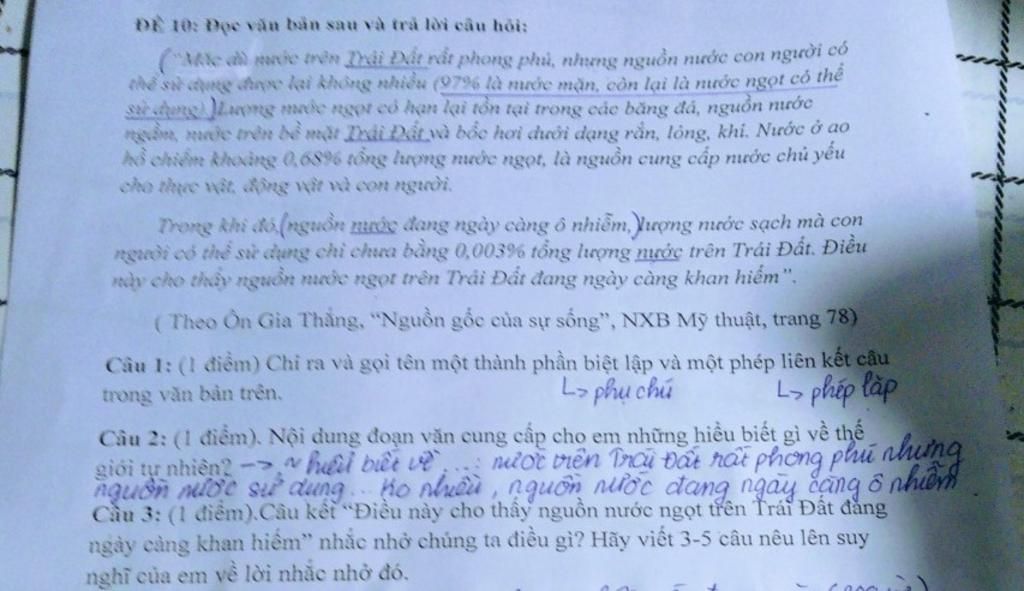 ĐỀ 10: Đọc văn bản sau và trả lời câu hỏi:
("Mặc dù nước trên Trái Đất rất phong phú, nhưng nguồn nước con người có
thể sử dụng được lại không nhiều (97% là nước mặn, còn lại là nước ngọt có thể
sử dụng).) Lượng nước ngọt có hạn lại tồn tại trong các băng đá, nguồn nước
ngầm, nước trên bề mặt Trái Đất và bốc hơi dưới dạng rắn, lỏng, khí. Nước ở ao
hồ chiếm khoảng 0,68% tổng lượng nước ngọt, là nguồn cung cấp nước chủ yếu
cho thực vật, động vật và con người.
Trong khi đó,(nguồn nước đang ngày càng ô nhiễm,)lượng nước sạch mà con
người có thể sử dụng chỉ chưa bằng 0,003% tổng lượng nước trên Trái Đất. Điều
này cho thấy nguồn nước ngọt trên Trái Đất đang ngày càng khan hiếm".
( Theo Ôn Gia Thắng, "Nguồn gốc của sự sống", NXB Mỹ thuật, trang 78)
Câu 1: (1 điểm) Chỉ ra và gọi tên một thành phần biệt lập và một phép liên kết câu
trong văn bản trên. ↳ phụ chú ↳ phép lặp
Câu 2: (1 điểm). Nội dung đoạn văn cung cấp cho em những hiểu biết gì về thế
giới tự nhiên? → ~ hiểu biết về ...: nước trên Trái Đất rất phong phú nhưng
nguồn nước sử dụng... ko nhiều, nguồn nước đang ngày càng ô nhiễm
Câu 3: (1 điểm).Câu kết "Điều này cho thấy nguồn nước ngọt trên Trái Đất đang
ngày càng khan hiếm" nhắc nhở chúng ta điều gì? Hãy viết 3-5 câu nêu lên suy
nghĩ của em về lời nhắc nhở đó.